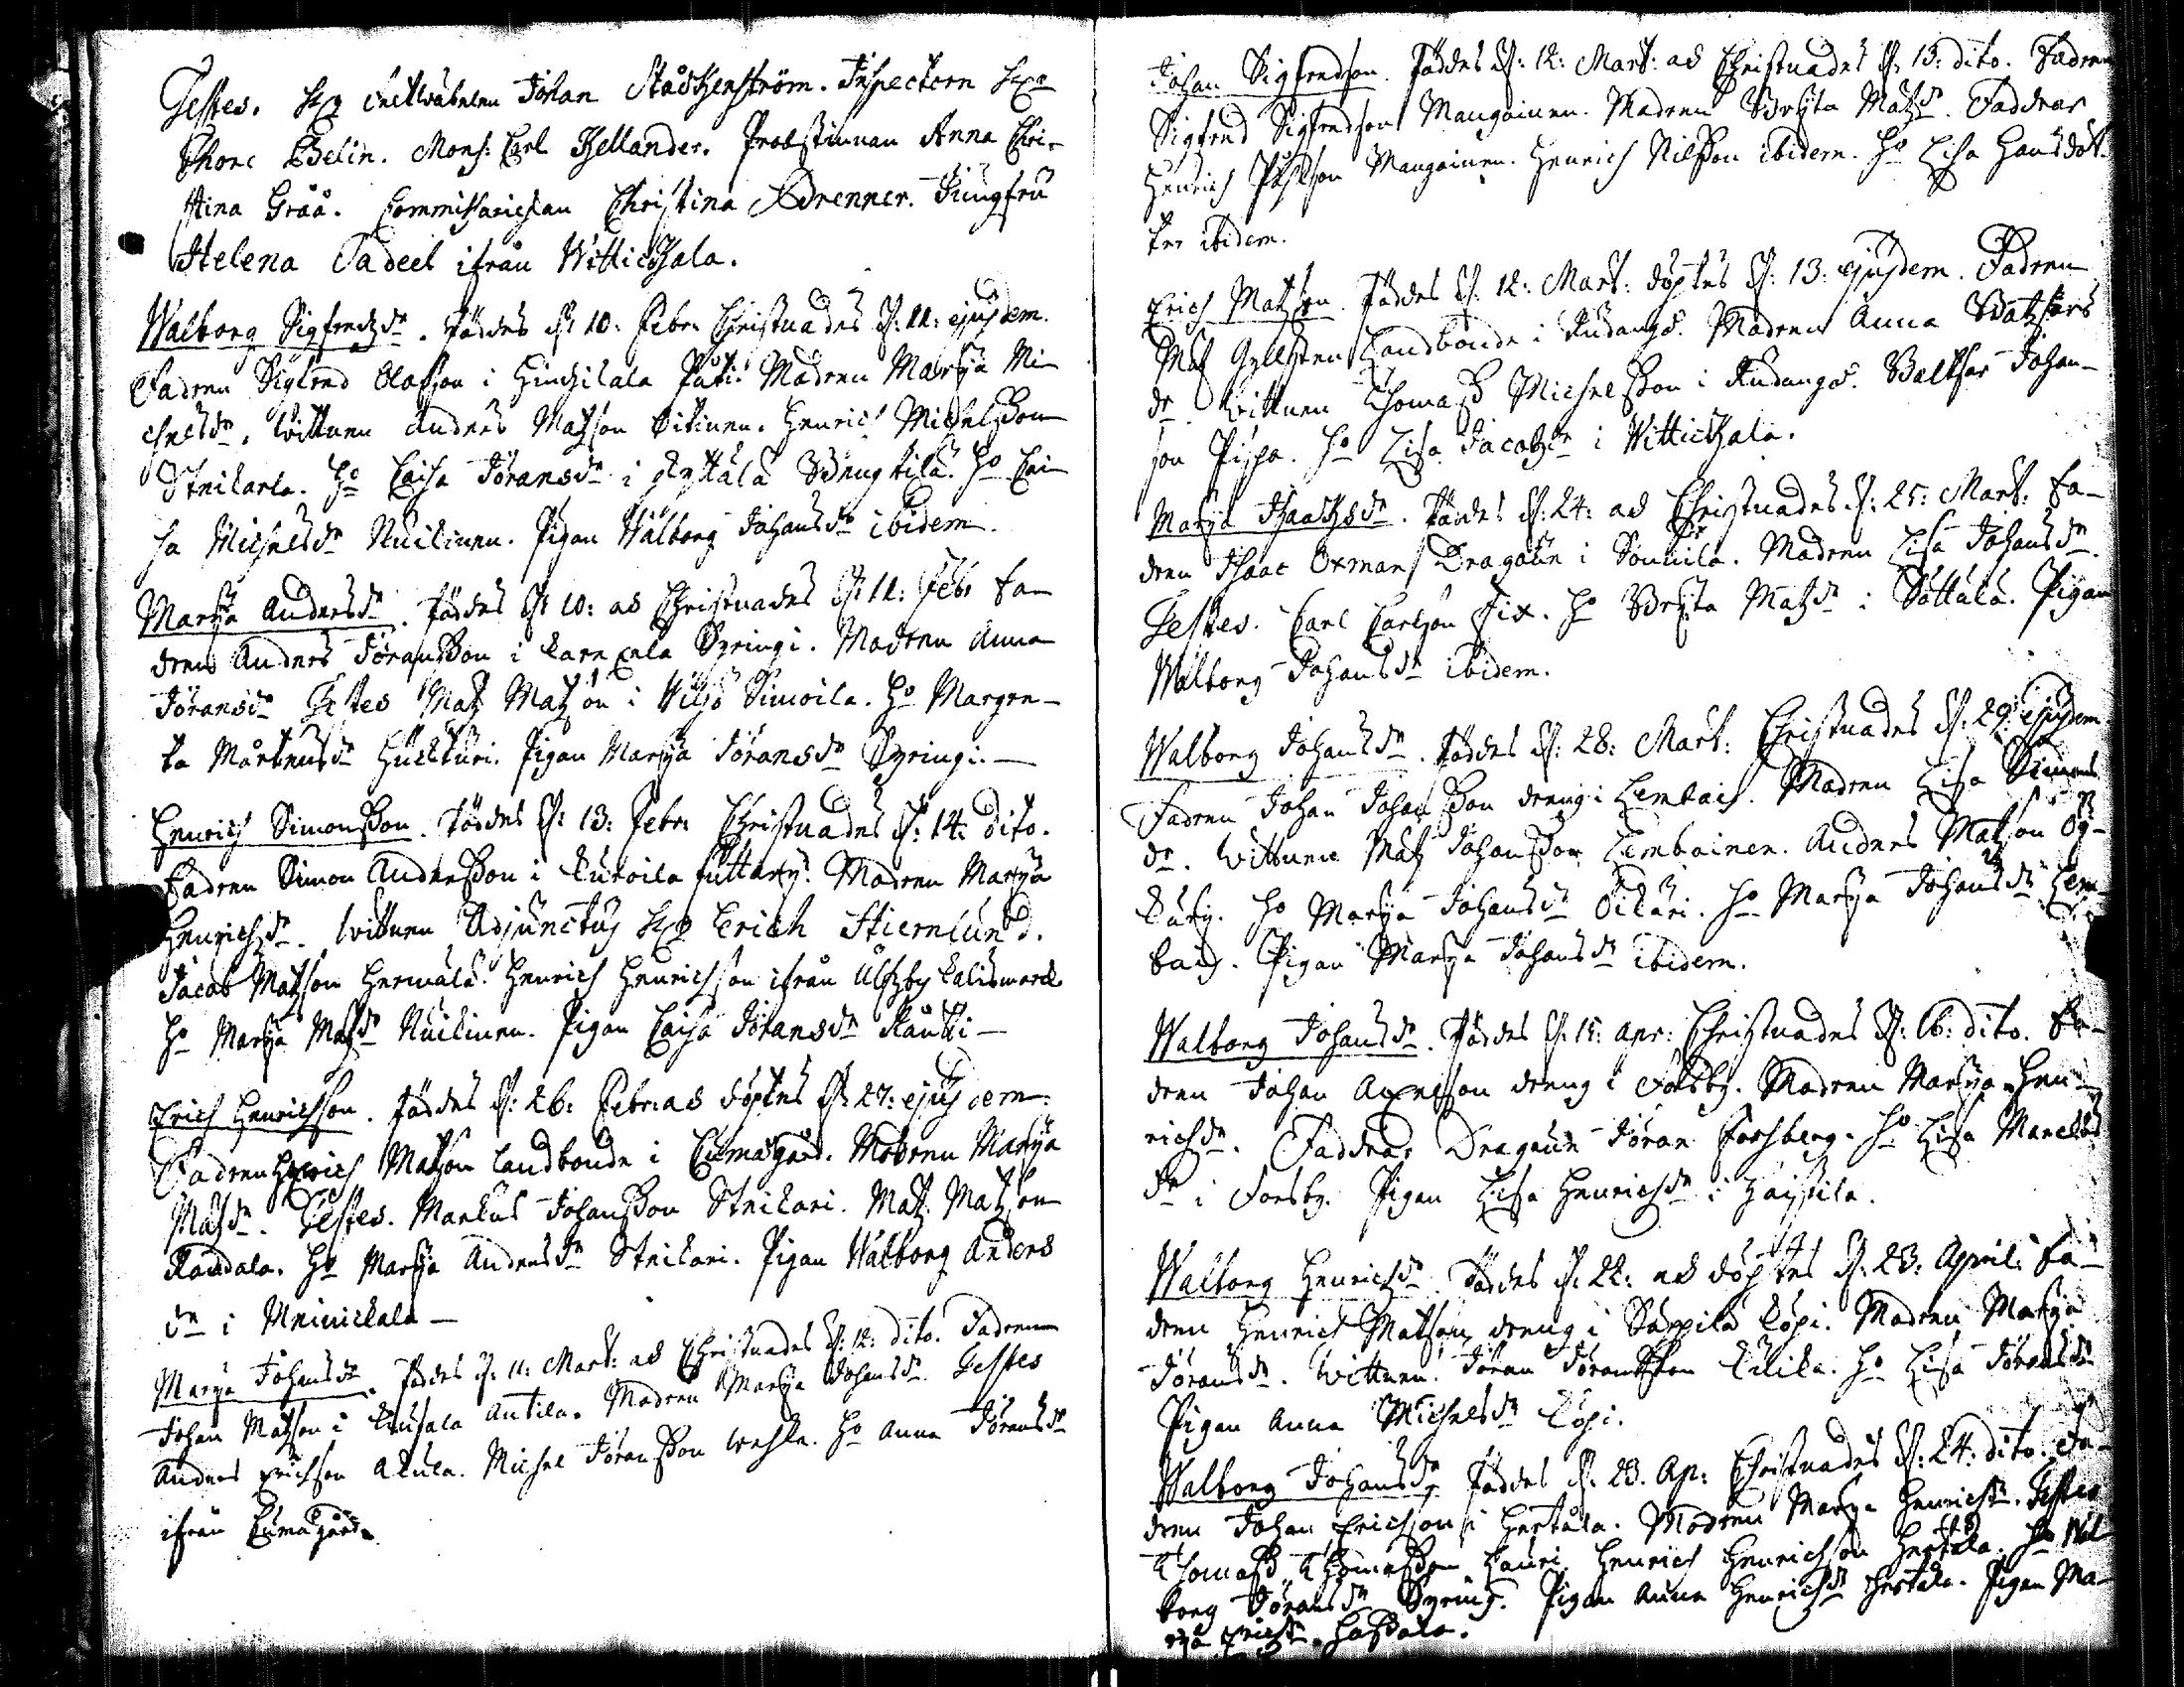 Testes. Johan Stååhlenström. Inspectoren
Thore Belin. Mons: Carl Hellander. Probstinnan Anna Chri-
stina Gråå. Commissarieskan Christina Brenner. Jungfru
Helena Tadeel ifrån Witticshala.
Walborg Sigfredzdr. föddes d: 10: Febr: Christnades d: 11: ejusdem.
Fadren Sigfred Olofson i Pati. Modren Marja Mi-
chelsdr. Wittnen Anders Matzson Henrich Michelsson
Strikarla. Ho Caisa Jöransdr i Ho Cai-
sa Michelsdr Nuikinen. Pigan Wålborg Johansdr ibidem.
Marja Andersdr. föddes d: 10: ad Christnades d: 11: Febr fa-
dren Anders Jöransson i Syringi. Modren Anna
Jöransdr Testes Matz Matzson i Wiljo Simoila. Ho Margre-
ta Mårtensdr Hukkuri. Pigan Marja Jöransdr Syringi.
Henrich Simonsson. föddes d: 13: Febr: Christnades d: 14: dito.
Fadren Simon Andersson i Kuroila Modren Marja
Henrichsdr. Wittnen Adjunctus Erich Stiernlund.
Jacob Matzson Hermala. Henrich Henrichsson ifrån Ulfzby Calismark
Ho Marja Matzdr Nuikinen. Pigan Caisa Jöransdr Rautti
Erich Henrichsson. föddes d: 26: Febr: ad döptes d: 27: ejusdem.
Fadren Henrich Matzson landbonde i Cumogård. Modren Marja
Matzdr. Testes. Markus Johansson Strikari. Matz Matzson
Raudala. Ho Marja Andersdr Strikari. Pigan Walborg Anders
dr i
Marja Johansdr. föddes d: 11: Mart: ad Christnades d: 12: dito. Fadren
Johan Matzson i Antila. Modren Marja Johansdr. Testes
Anders Erichson Akula. Michel Jöransson Ho Anna Jöransdr
ifrån Cumogård.
Johan Sigfredson. föddes d: 12: Mart: ad Christnades d: 13: dito. Fadren
Sigfred Sigfredson Mangoinen. Madren Bryta Matzdr. Faddrar
Henrich Påhlson Mangoinen. Henrich Nilsson ibidem. Ho Lisa Hansdot-
ter ibidem.
Erich Matzson. föddes d: 12: Mart: döptes d: 13: ejusdem. Fadren
Matz Gyllsten Landbonde i Rudango. Madren Anna Batzfars
dr Wittnen Thomas Michelsson i Rudango. Balthsar Johan-
son Pispa. Ho Lisa Jacobsdr i Witticshala.
Marja Isaachsdr. föddes d: 24: ad Christnades d: 25: Mart: fa-
dren Isaac Oxman Dragoun i Sonnila. Madren Lisa Johansdr.
Testes. Carl Carlson Fix. Ho Bryta Matzdr i Såttala. Pigan
Wålborg Johansdr ibidem.
Walborg Johansdr. föddes d: 28: Mart: Christnades d: 29: ejusdem
Fadren Johan Johansson dreng i Lembois. Madren Lisa Simons
dr. Wittnen Matz Johansson Lemboinen. Anders Matzson
Ho Marja Johansdr Oikari. Ho Marja Johansdr Lem-
bois. Pigan Marja Johansdr ibidem.
Walborg Johansdr. föddes d: 15: Apr: Christnades d: 16: dito. fa-
dren Johan Axelsson dreng i Forsby. Madren Marja Hen-
richsdr. Faddrar Dragoun Jöran Forsberg. Ho Lisa Marcus
dr i Forsby. Pigan Lisa Henrichsdr i Haistila.
Walborg Henrichsdr. föddes d: 22: ad döptes d: 23: April. fa-
dren Henrich Matzson dreng i Såxpila Köpi. Madren Marja
Jöransdr. Wittnen. Jöran Jöransson Ho Lisa Jöransdr
Pigan Anna Michelsdr Köpi.
Walborg Johansdr. föddes d: 23. Ap: Christnades d: 24: dito. Fa-
dren Johan Erichson i Hertåla. Modren Marja Henrichsdr. Testes
Thomas Thomasson Lauri. Henrich Henrichson Hertåla. Ho Wal-
borg Jöransdr Syring. Pigan Anna Henrichsdr Hertåla. Pigan Ma-
rja Erichsdr.